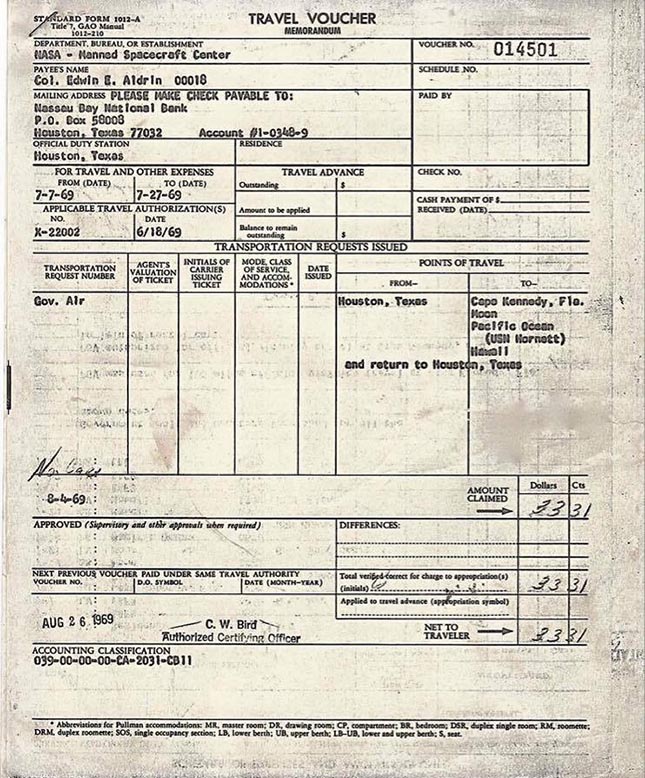 STANDARD FORM 1012-A
Title 7, GAO Manual
1012-210
TRAVEL VOUCHER
MEMORANDUM
DEPARTMENT, BUREAU, OR ESTABLISHMENT
NASA - Manned Spacecraft Center
VOUCHER NO. 014501
PAYEE'S NAME
Col. Edwin E. Aldrin 00018
SCHEDULE NO.
MAILING ADDRESS PLEASE MAKE CHECK PAYABLE TO:
Nassau Bay National Bank
P.O. Box 58008
Houston, Texas 77032 Account #1-0348-9
PAID BY
OFFICIAL DUTY STATION
Houston, Texas
RESIDENCE
FOR TRAVEL AND OTHER EXPENSES
FROM (DATE) TO (DATE)
7-7-69 7-27-69
TRAVEL ADVANCE
Outstanding $
Amount to be applied
Balance to remain
outstanding $
CHECK NO.
CASH PAYMENT OF $
RECEIVED (DATE)
APPLICABLE TRAVEL AUTHORIZATION(S)
NO. DATE
X-22002 6/18/69
TRANSPORTATION REQUESTS ISSUED
TRANSPORTATION
REQUEST NUMBER
AGENT'S
VALUATION
OF TICKET
INITIALS OF
CARRIER
ISSUING
TICKET
MODE, CLASS
OF SERVICE,
AND ACCOM-
MODATIONS *
DATE
ISSUED
POINTS OF TRAVEL
FROM— TO—
Gov. Air Houston, Texas Cape Kennedy, Fla.
Moon
Pacific Ocean
(USN Hornett)
Hawaii
and return to Houston, Texas
8-4-69
AMOUNT
CLAIMED
Dollars Cts
33 31
APPROVED (Supervisory and other approvals when required)
DIFFERENCES:
NEXT PREVIOUS VOUCHER PAID UNDER SAME TRAVEL AUTHORITY
VOUCHER NO. D.O. SYMBOL DATE (MONTH-YEAR)
Total verified correct for charge to appropriation(s)
(initials) 33 31
Applied to travel advance (appropriation symbol)
AUG 26 1969
C. W. Bird
Authorized Certifying Officer
NET TO
TRAVELER 33 31
ACCOUNTING CLASSIFICATION
039-00-00-00-CA-2031-CB11
* Abbreviations for Pullman accommodations: MR, master room; DR, drawing room; CP, compartment; BR, bedroom; DSR, duplex single room; RM, roomette;
DRM, duplex roomette; SOS, single occupancy section; LB, lower berth; UB, upper berth; LB-UB, lower and upper berth; S, seat.